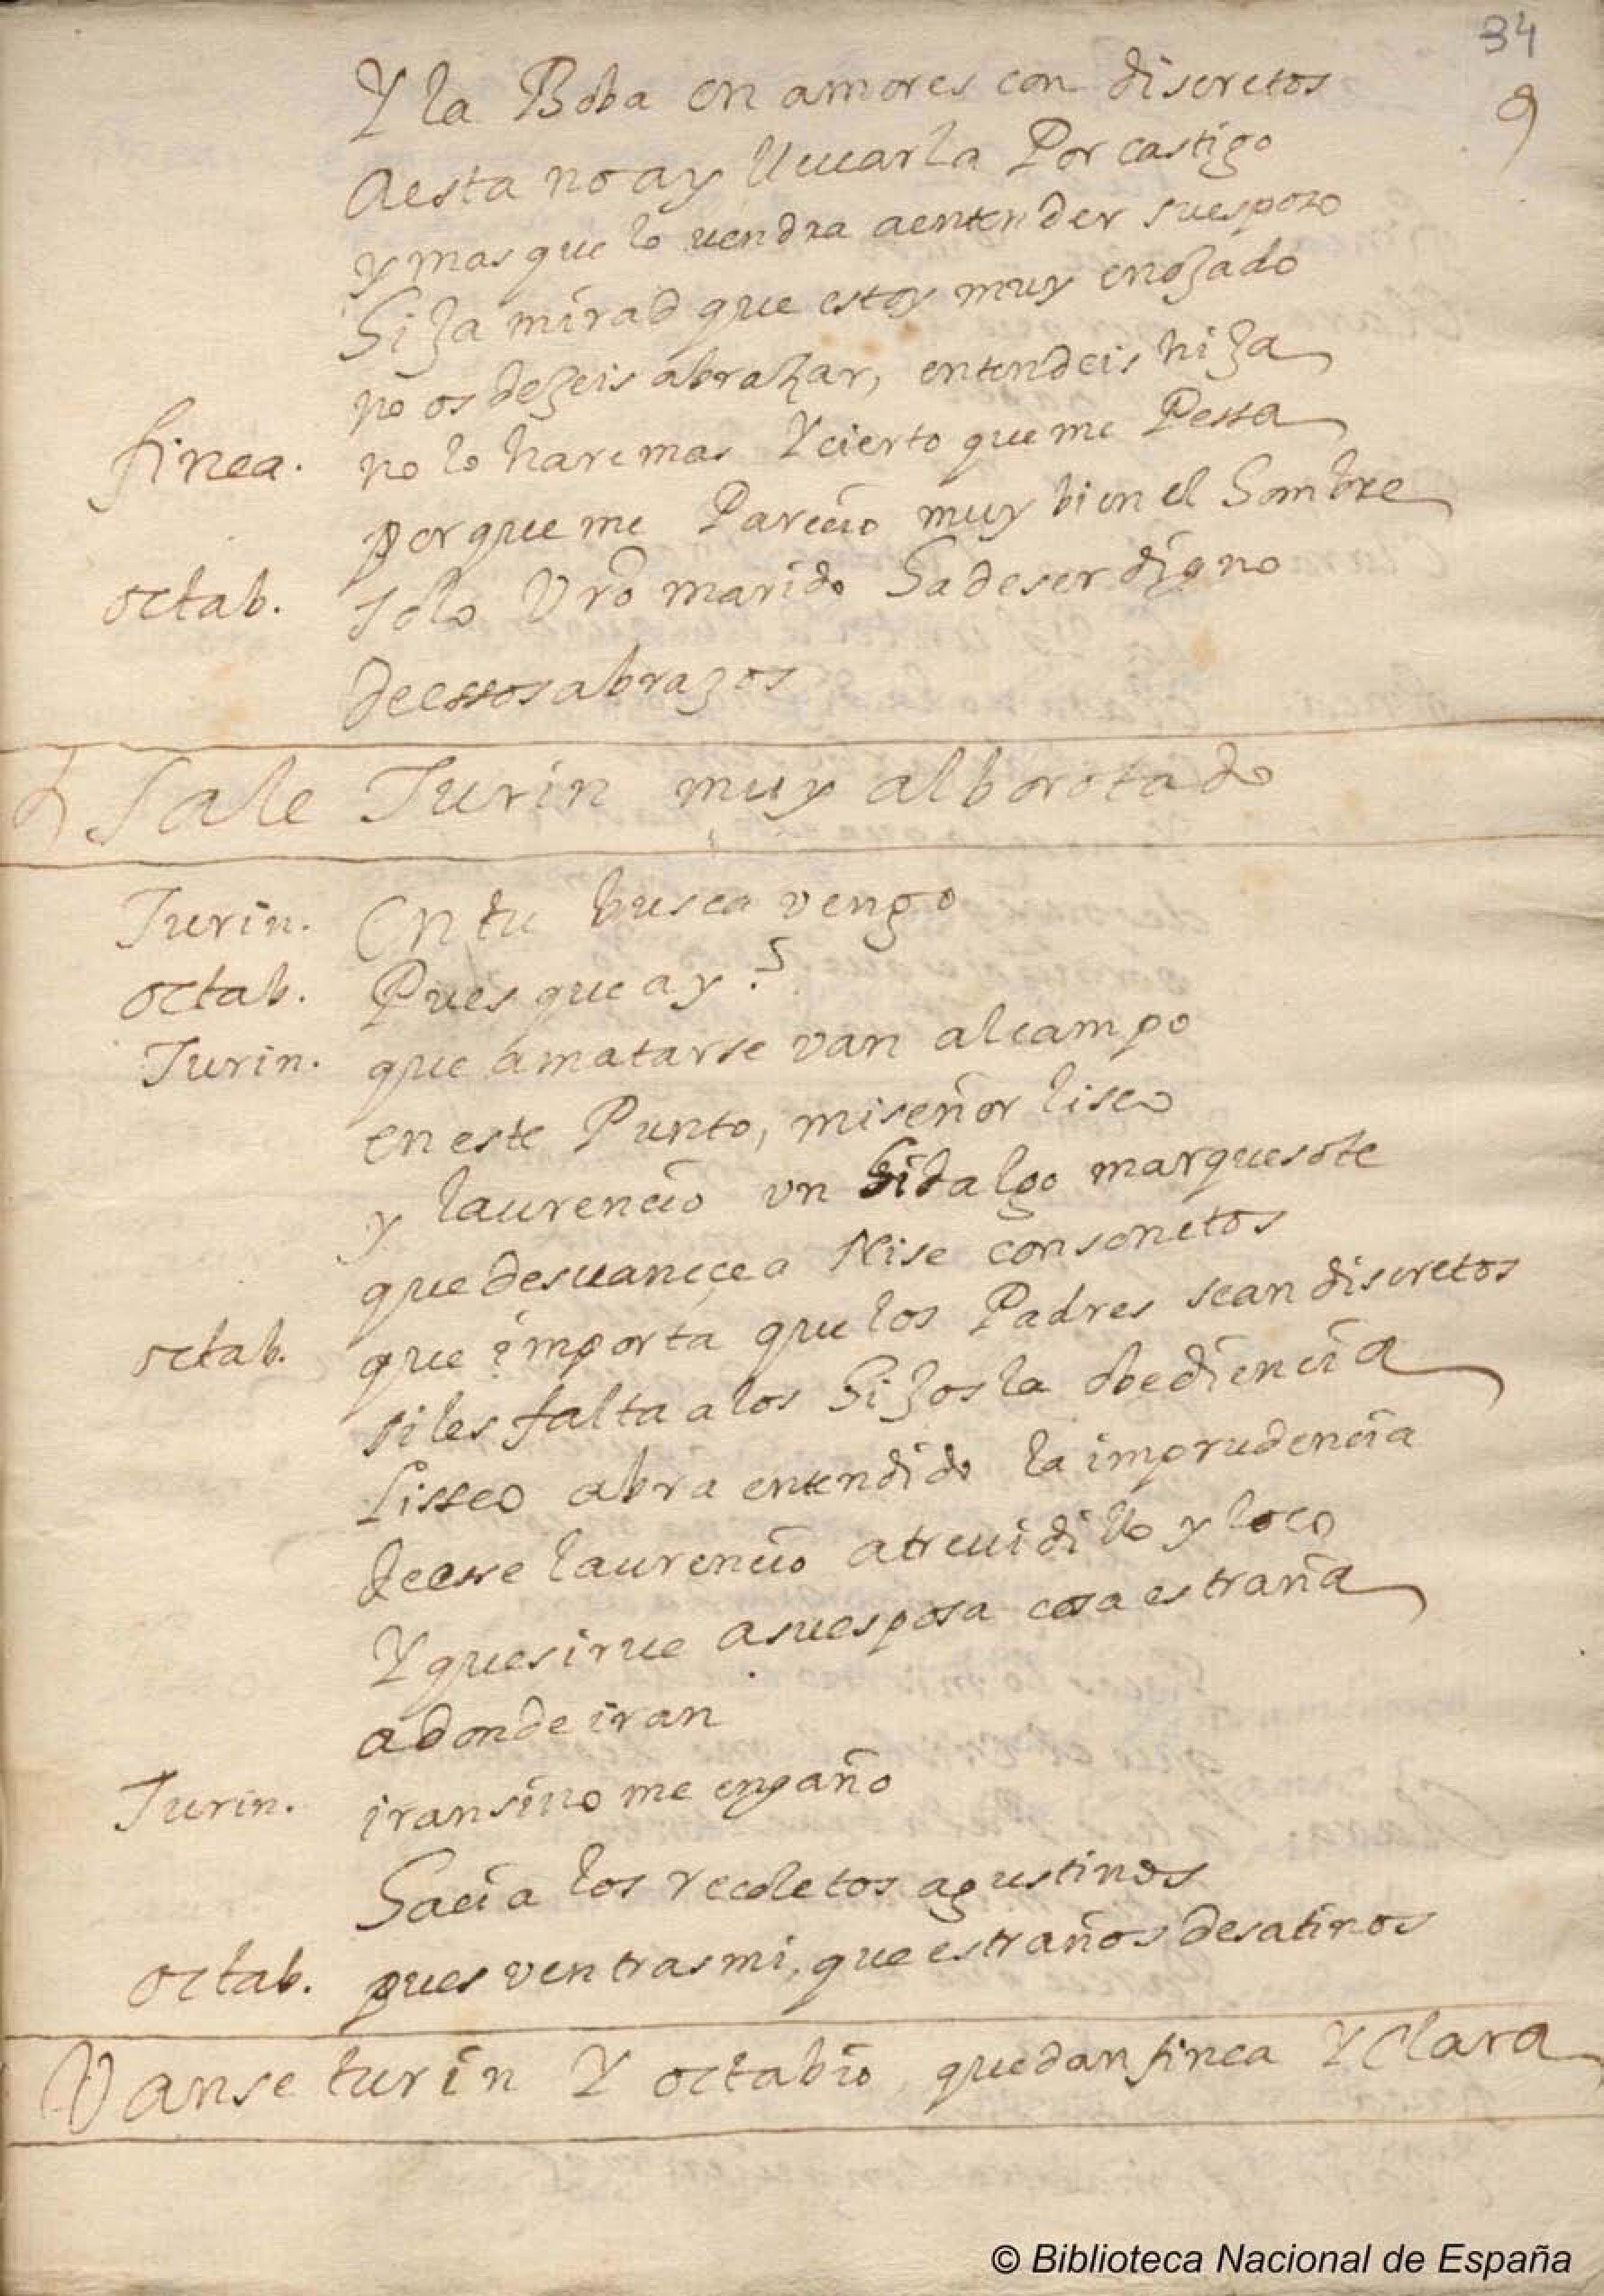 34
9
Y la Boba en amores con discretos
aesta no ay lleuarla Por castigo
y mas que lo uendra aentender suesposo
hija mirad que estoy muy enojado
no os dejeis abrazar, entendeis hija
finea. no lo hare mas Y cierto que me Pessa
porque me Parecio muy bien el hombre
octab. solo Vro marido hadeser digno
deessos abrazos
Sale Turin muy alborotado
Turin. En tu busca vengo
octab. Pues que ay?
Turin. que amatarse van alcampo
en este Punto, miseñor liseo
y laurencio vn hidalgo marquesote
que desuanece a Nise con sonetos
octab. que importa que los Padres sean discretos
siles falta alos hijos la obediencia
Lisseo abra entendido la imprudencia
deese laurencio atreuidillo y loco
Y que sirue asuesposa cosa estraña
adonde iran
Turin. iran sino me engaño
hacia los recoletos agustinos
octab. pues ven tras mi, que estraños desatinos
Vanse turin Y octabio, quedan finea Y Clara
© Biblioteca Nacional de España